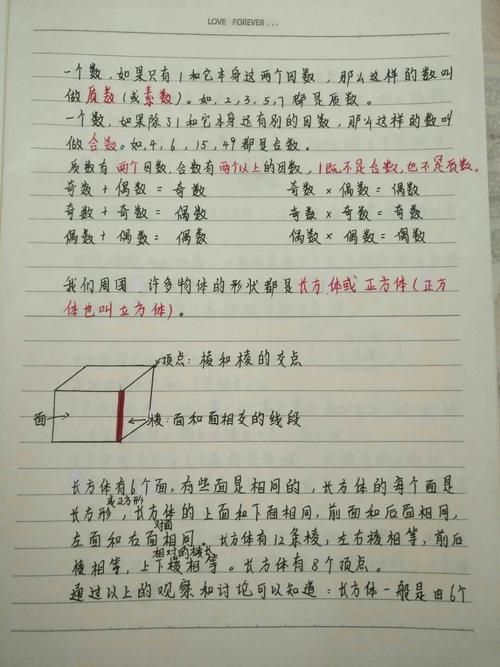 LOVE FOREVER...
一个数，如果只有1和它本身这两个因数，那么这样的数叫
做质数（或素数）。如，2，3，5，7都是质数。
一个数，如果除了1和它本身还有别的因数，那么这样的数叫
做合数。如，4，6，15，49都是合数。
质数有两个因数，合数有两个以上的因数，1既不是合数，也不是质数。
奇数＋偶数＝奇数 奇数×偶数＝偶数
奇数＋奇数＝偶数 奇数×奇数＝奇数
偶数＋偶数＝偶数 偶数×偶数＝偶数
我们周围 许多物体的形状都是长方体或正方体（正方
体也叫立方体）。
顶点：棱和棱的交点
面
棱：面和面相交的线段
长方体有6个面，有些面是相同的，长方体的每个面是
或正方形
长方形，长方体的上面和下面相同，前面和后面相同，
对面
左面和右面相同。长方体有12条棱，左右棱相等，前后
相对的棱长
棱相等，上下棱相等。长方体有8个顶点。
通过以上的观察和讨论可以知道：长方体一般是由6个